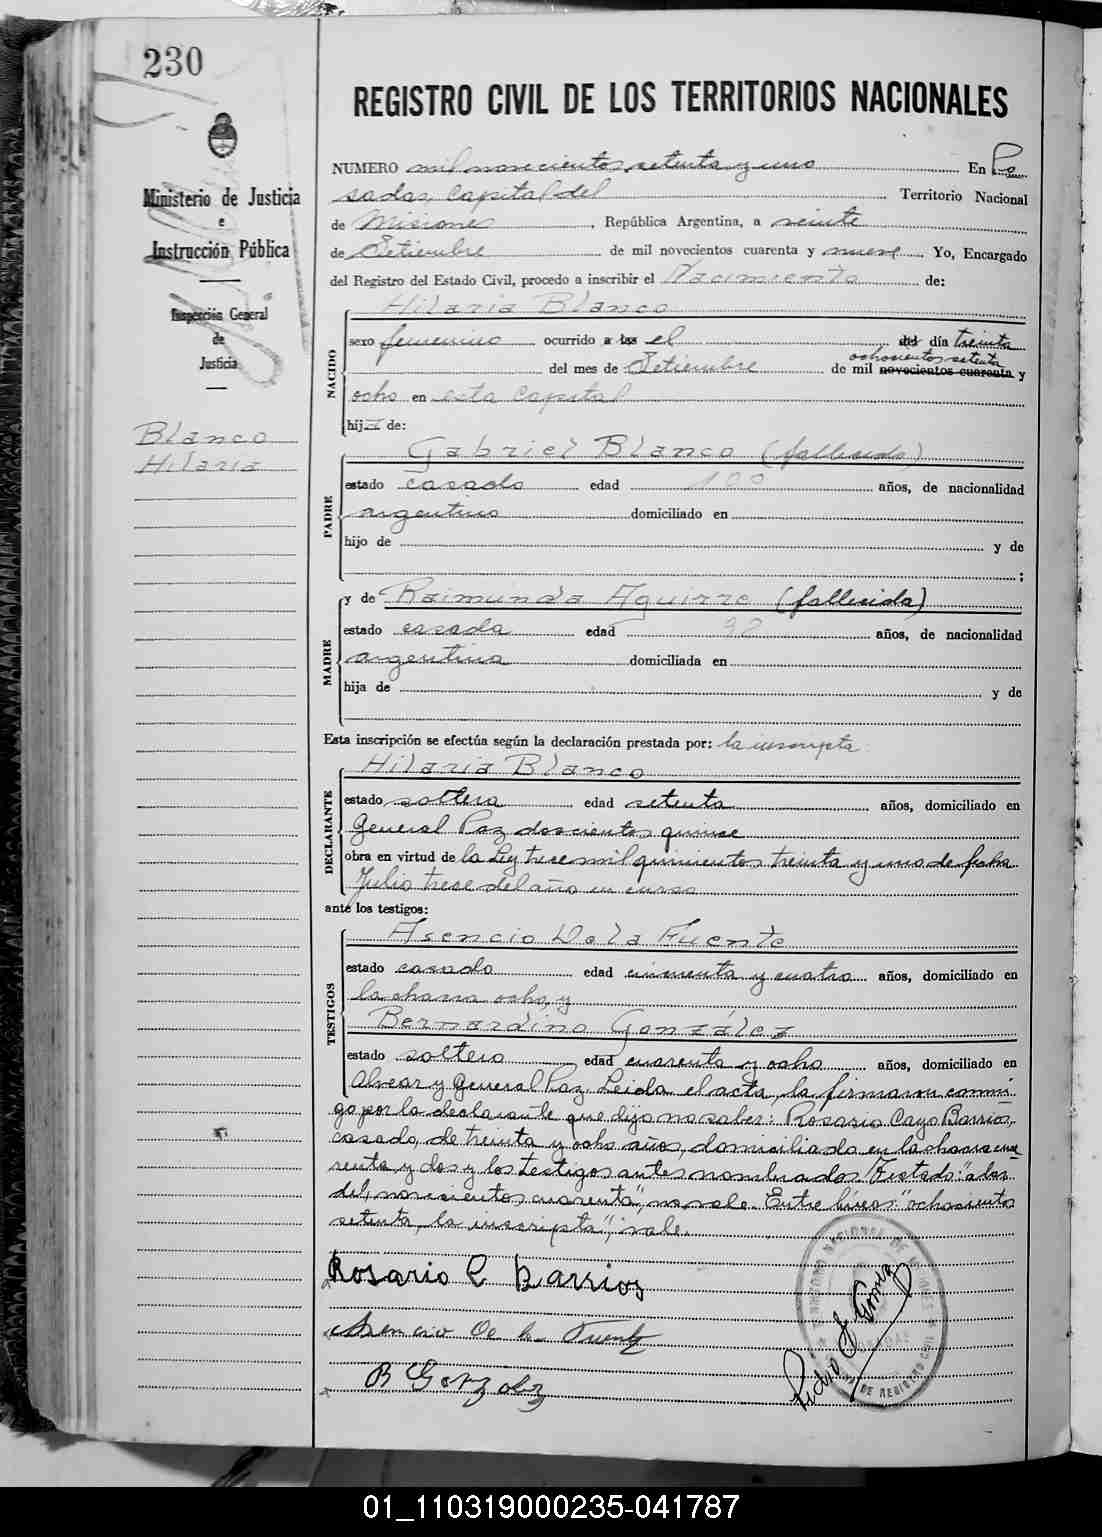 230
REGISTRO CIVIL DE LOS TERRITORIOS NACIONALES
Ministerio de Justicia
e
Instrucción Pública
Inspección General
de
Justicia
Blanco
Hilaria
NUMERO mil novecientos setenta y uno En Po
sadas, Capital del Territorio Nacional
de Misiones, República Argentina, a veinte
de Setiembre de mil novecientos cuarenta y nueve Yo, Encargado
del Registro del Estado Civil, procedo a inscribir el Nacimiento de:
NACIDO
Hilaria Blanco
sexo femenino ocurrido a las el del día treinta
ochocientos setenta
del mes de Setiembre de mil novecientos cuarenta y
ocho en esta Capital
hija de:
PADRE
Gabriel Blanco (fallecido)
estado casado edad 100 años, de nacionalidad
argentino domiciliado en
hijo de y de
;
MADRE
y de Raimunda Aguirre (fallecida)
estado casada edad 90 años, de nacionalidad
argentina domiciliada en
hija de y de
Esta inscripción se efectúa según la declaración prestada por: la inscripta
DECLARANTE
Hilaria Blanco
estado soltera edad setenta años, domiciliado en
General Paz doscientos quince
obra en virtud de la Ley trece mil quinientos treinta y uno de fecha
Julio trece del año en curso
ante los testigos:
TESTIGOS
Asencio De la Fuente
estado casado edad cincuenta y cuatro años, domiciliado en
la chacra ocho, y
Bernardino González
estado soltero edad cuarenta y ocho años, domiciliado en
Alvear y General Paz. Leida el acta, la firmaron conmi
go por la declarante que dijo no saber: Rosario Cayo Barrios,
casado, de treinta y ocho años, domiciliado en la chacra cua
renta y dos y los testigos antes nombrados. Testado: "a las
del, novecientos cuarenta", no vale. Entre líneas: "ochocientos
setenta, la inscripta"; vale.
Rosario C Barrios
Asencio De la Fuente
B Gonzalez
Pedro J Gomez
TERRITORIO NACIONAL DE MISIONES
POSADAS
DE REGISTRO CIVIL
01_110319000235-041787